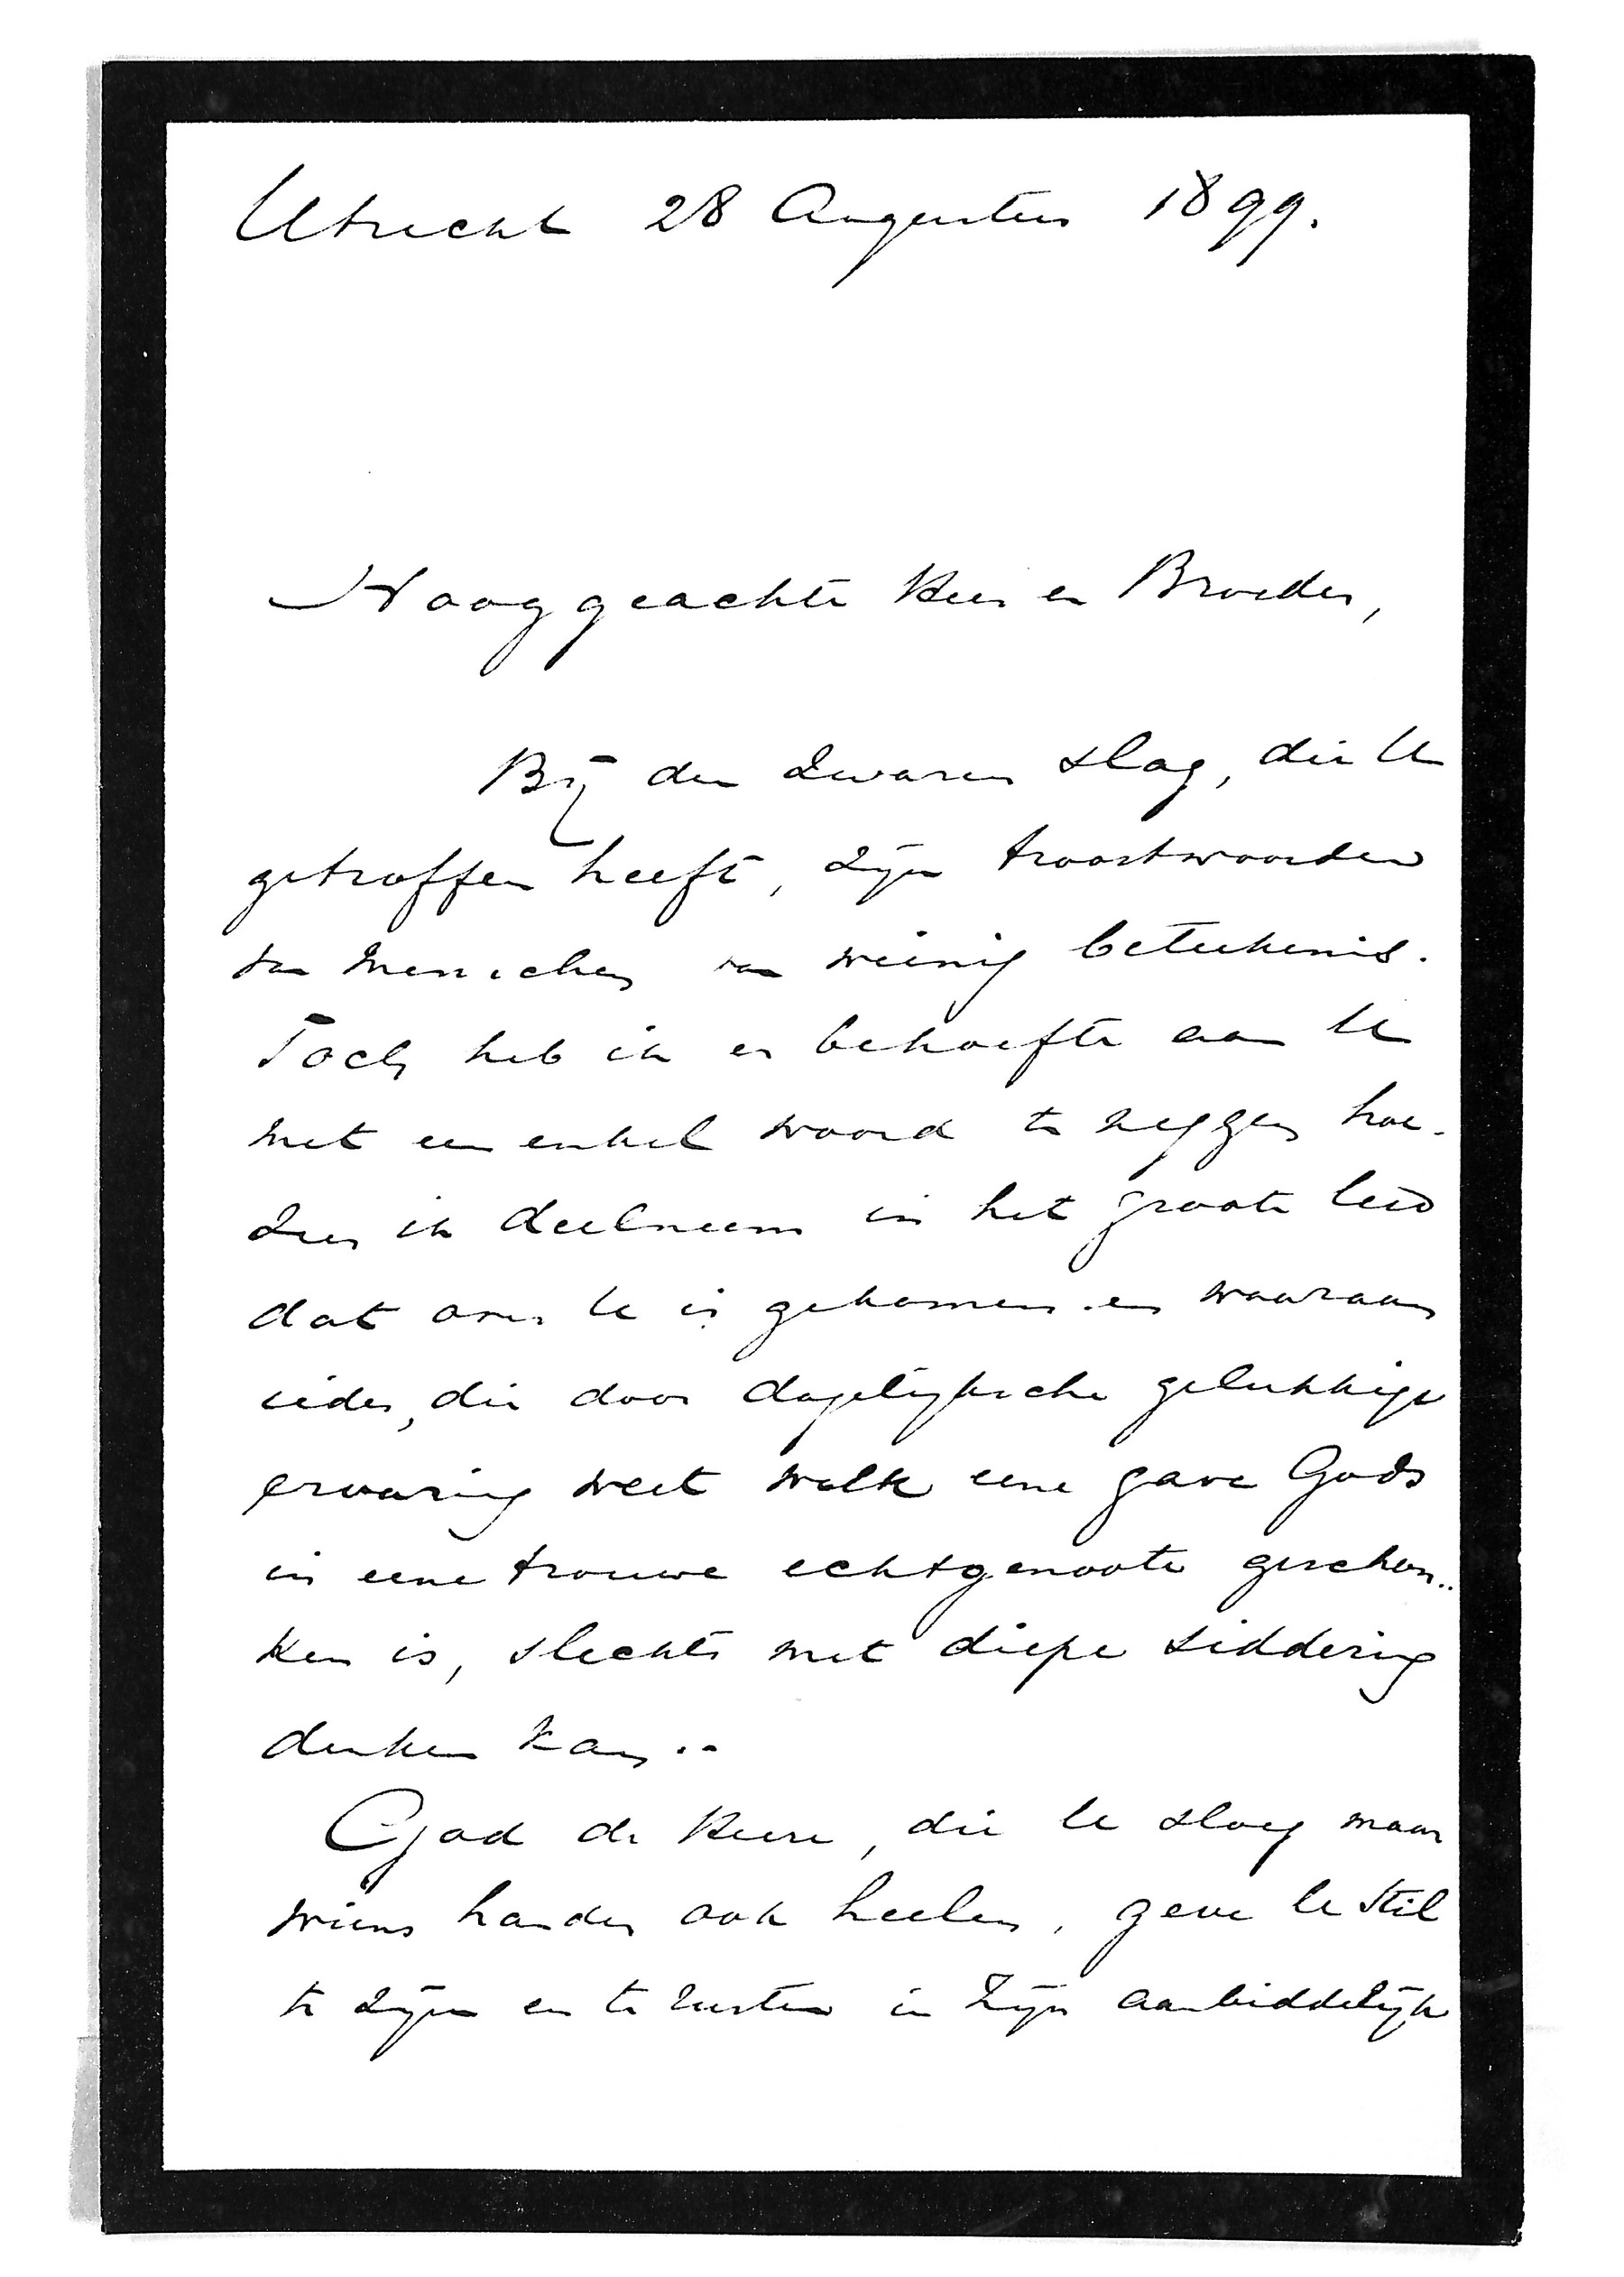 Utrecht 28 Augustus 1899.
Hooggeachte Heer en Broeder,
Bij den zwaren slag, die U
getroffen heeft, zijn troostwoorden
van menschen van weinig beteekenis.
Toch heb ik er behoefte aan U
met een enkel woord te zeggen hoe-
zeer ik deelneem in het groote leed
dat over U is gekomen en waaraan
ieder, die door dagelijksche gelukkige
ervaring weet welk eene gave Gods
in eene trouwe echtgenoote geschon-
ken is, slechts met diepe siddering
denken kan..
God de Heere, die U sloeg maar
wiens handen ook heelen, geve U stil
te zijn en te rusten in Zijn aanbiddelijk